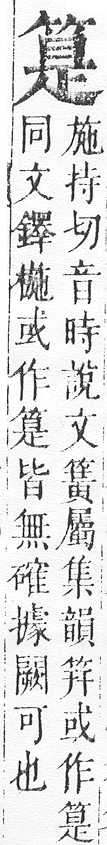 筫
施持切音時說文簧屬集韻筓或作筫
同文鐸㮛或作筫皆無確據闕可也